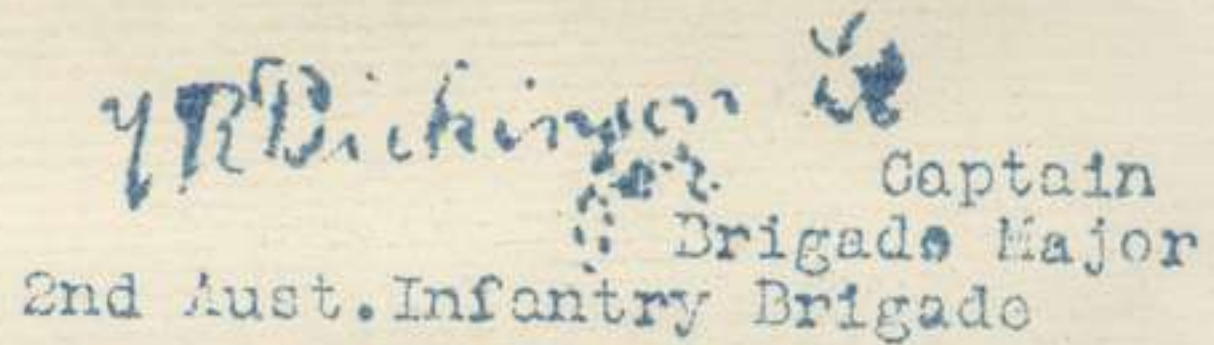 Y R Dickinson Lt
for
Captain
Brigade Major
2nd Aust.Infantry Brigade